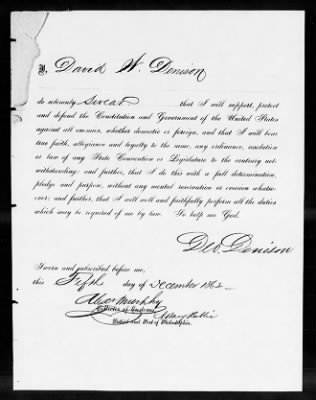 I, David W. Denison
do solemnly Swear that I will support, protect
and defend the Constitution and Government of the United States
against all enemies, whether domestic or foreign, and that I will bear
true faith, allegiance and loyalty to the same, any ordinance, resolution
or law of any State Convention or Legislature to the contrary not-
withstanding; and further, that I do this with a full determination,
pledge and purpose, without any mental reservation or evasion whatso-
ever; and further, that I will well and faithfully perform all the duties
which may be required of me by law. So help me God.
Denison
Sworn and subscribed before me,
this Fifth day of December 186
Murphy
Notary Public